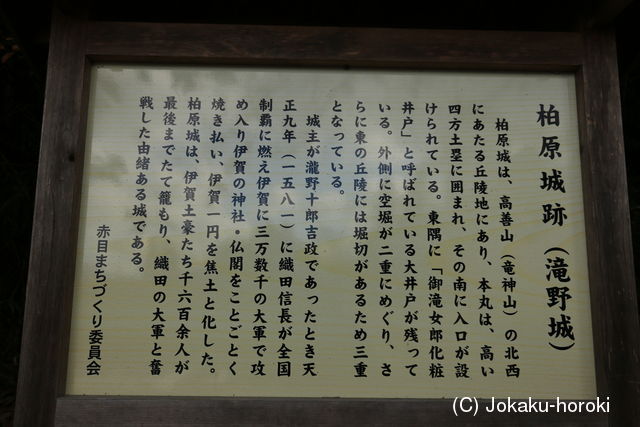 柏原城跡（滝野城）
柏原城は、高善山（竜神山）の北西
にあたる丘陵地にあり、本丸は、高い
四方土塁に囲まれ、その南に入口が設
けられている。東隅に「御滝女郎化粧
井戸」と呼ばれている大井戸が残って
いる。外側に空堀が二重にめぐり、さ
らに東の丘陵には堀切があるため三重
となっている。
城主が瀧野十郎吉政であったとき天
正九年（一五八一）に織田信長が全国
制覇に燃え伊賀に三万数千の大軍で攻
め入り伊賀の神社・仏閣をことごとく
焼き払い、伊賀一円を焦土と化した。
柏原城は、伊賀土豪たち千六百余人が
最後までたて籠もり、織田の大軍と奮
戦した由緒ある城である。
赤目まちづくり委員会
(C) Jokaku-horoki